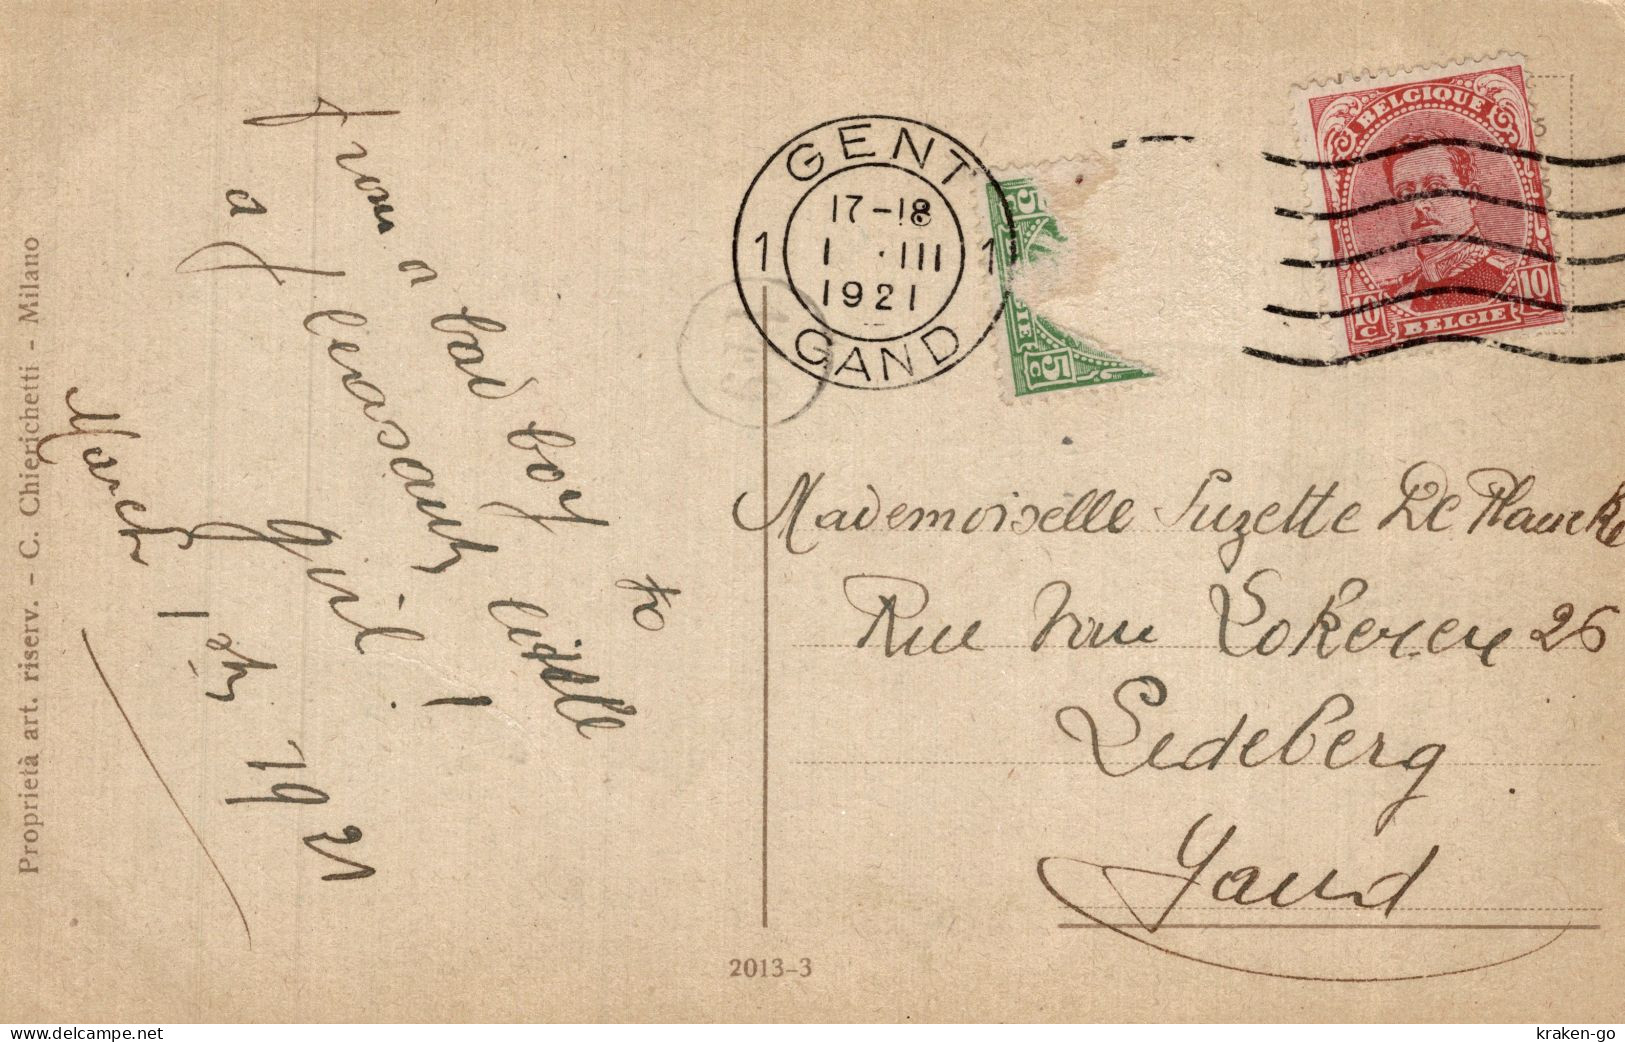 From a bad boy to
a pleasant liddle
girl!
March 1st 1921
Proprietà art. riserv. - C. Chierichetti - Milano
GENT
1 17-18 1
1 · III
1921
GAND
5
5
C
BELGIQUE
10 C 10
BELGIE
Mademoiselle Suzette De Plancke
Rue Van Lokeren 26
Ledeberg
Gand
2013-3
delcampe.net
kraken-go